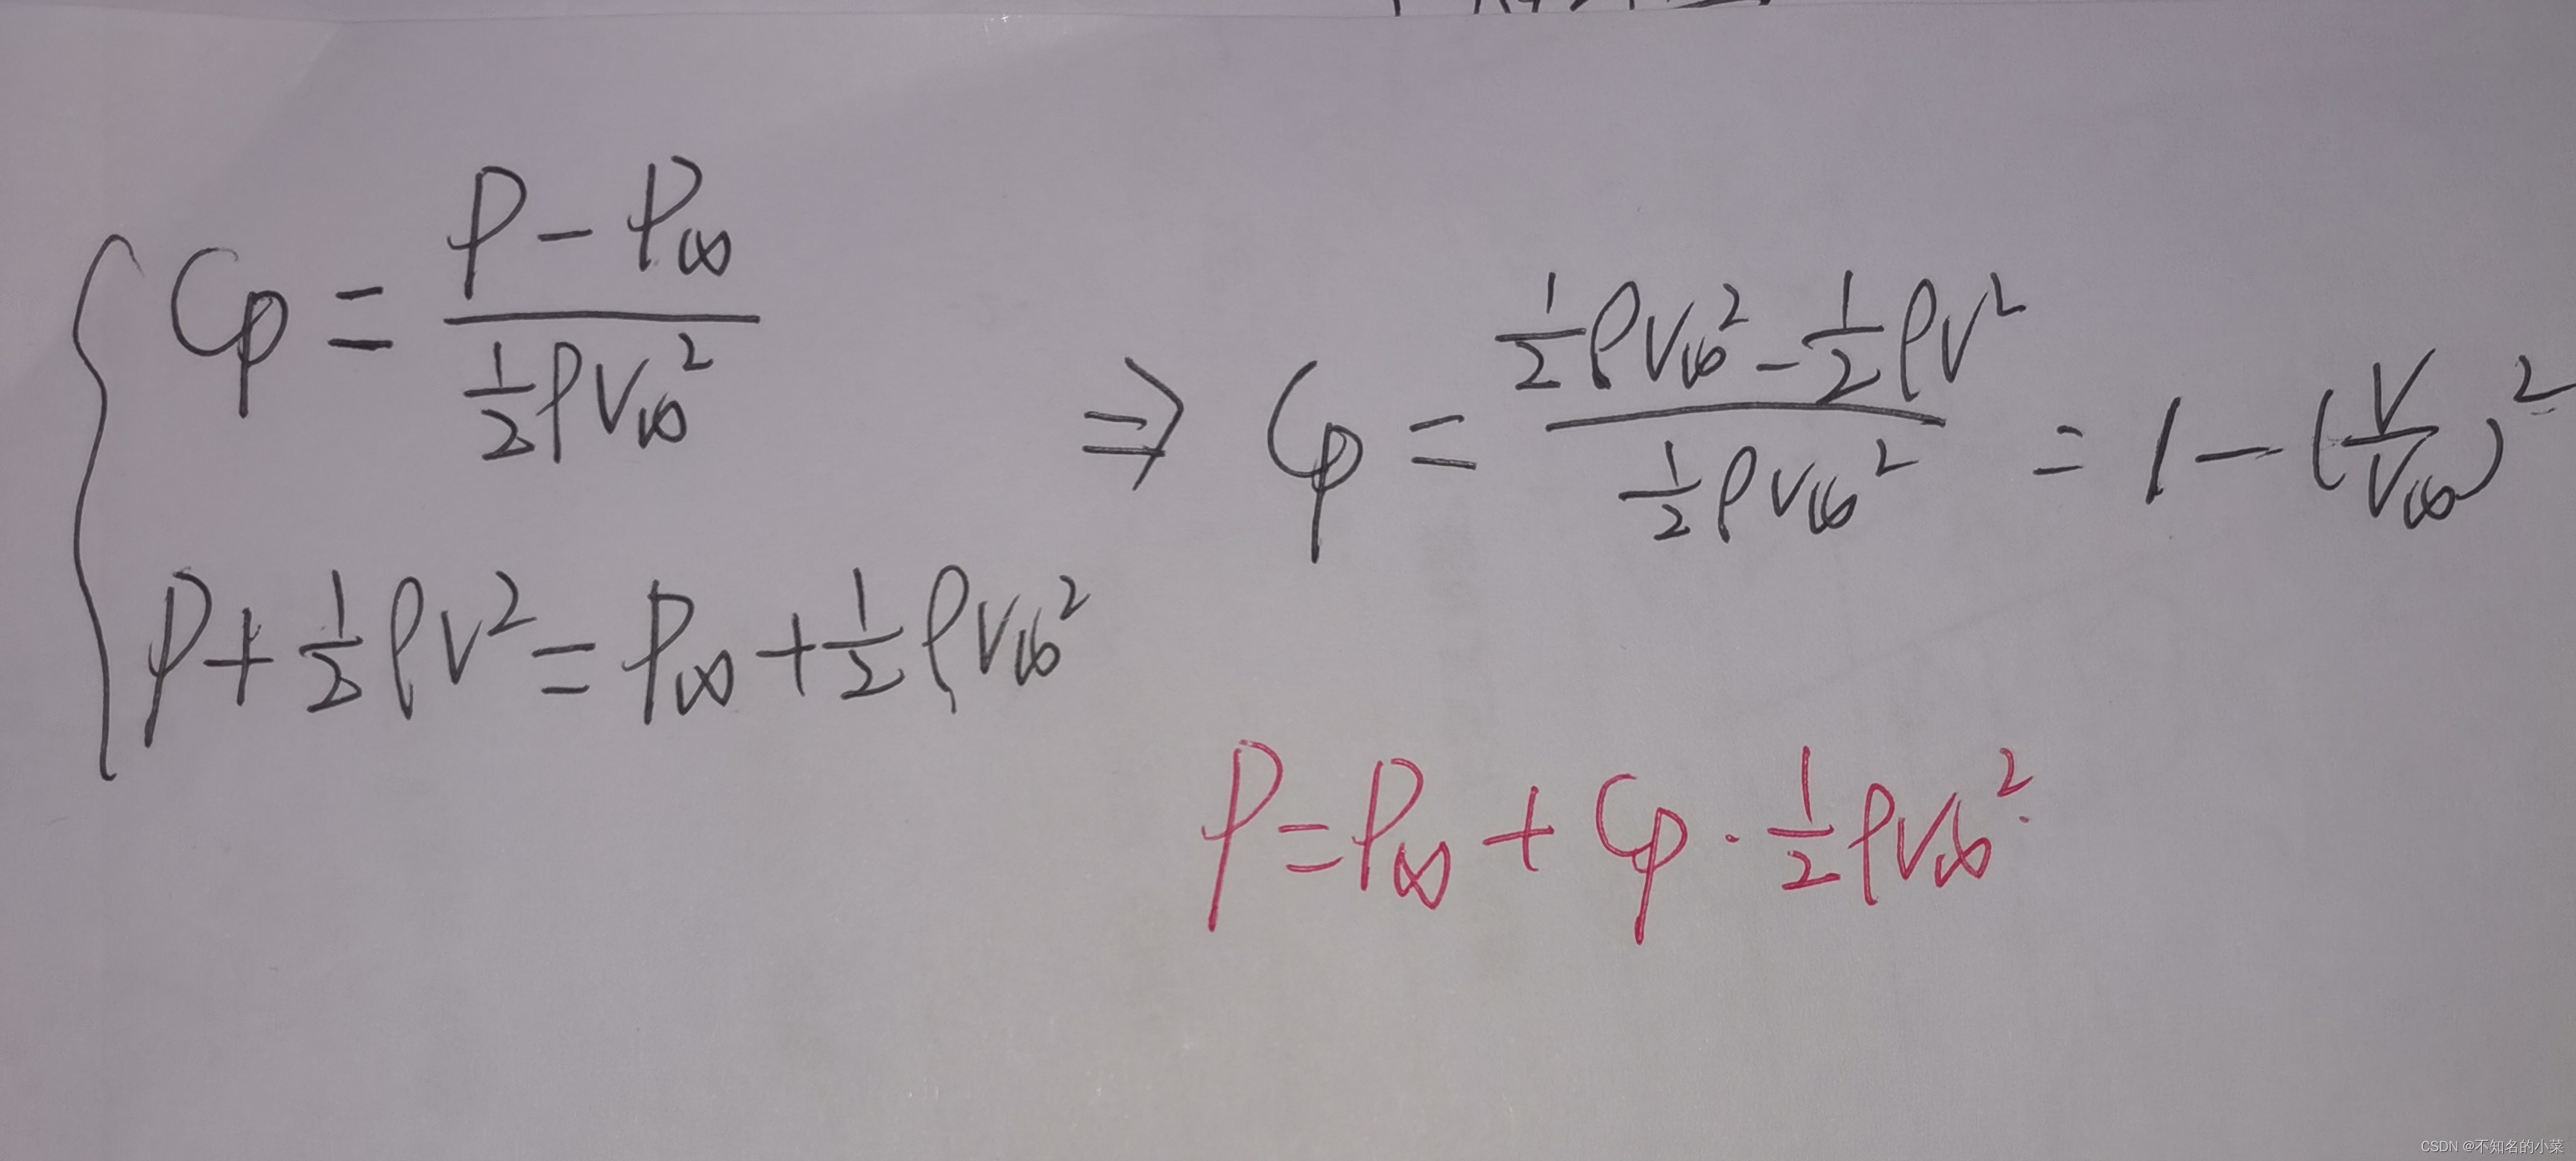 Cp = (P - P∞) / (½ρV∞²)
P + ½ρV² = P∞ + ½ρV∞²
⇒ Cp = (½ρV∞² - ½ρV²) / (½ρV∞²) = 1 - (V/V∞)²
P = P∞ + Cp · ½ρV∞².
CSDN @不知名的小菜